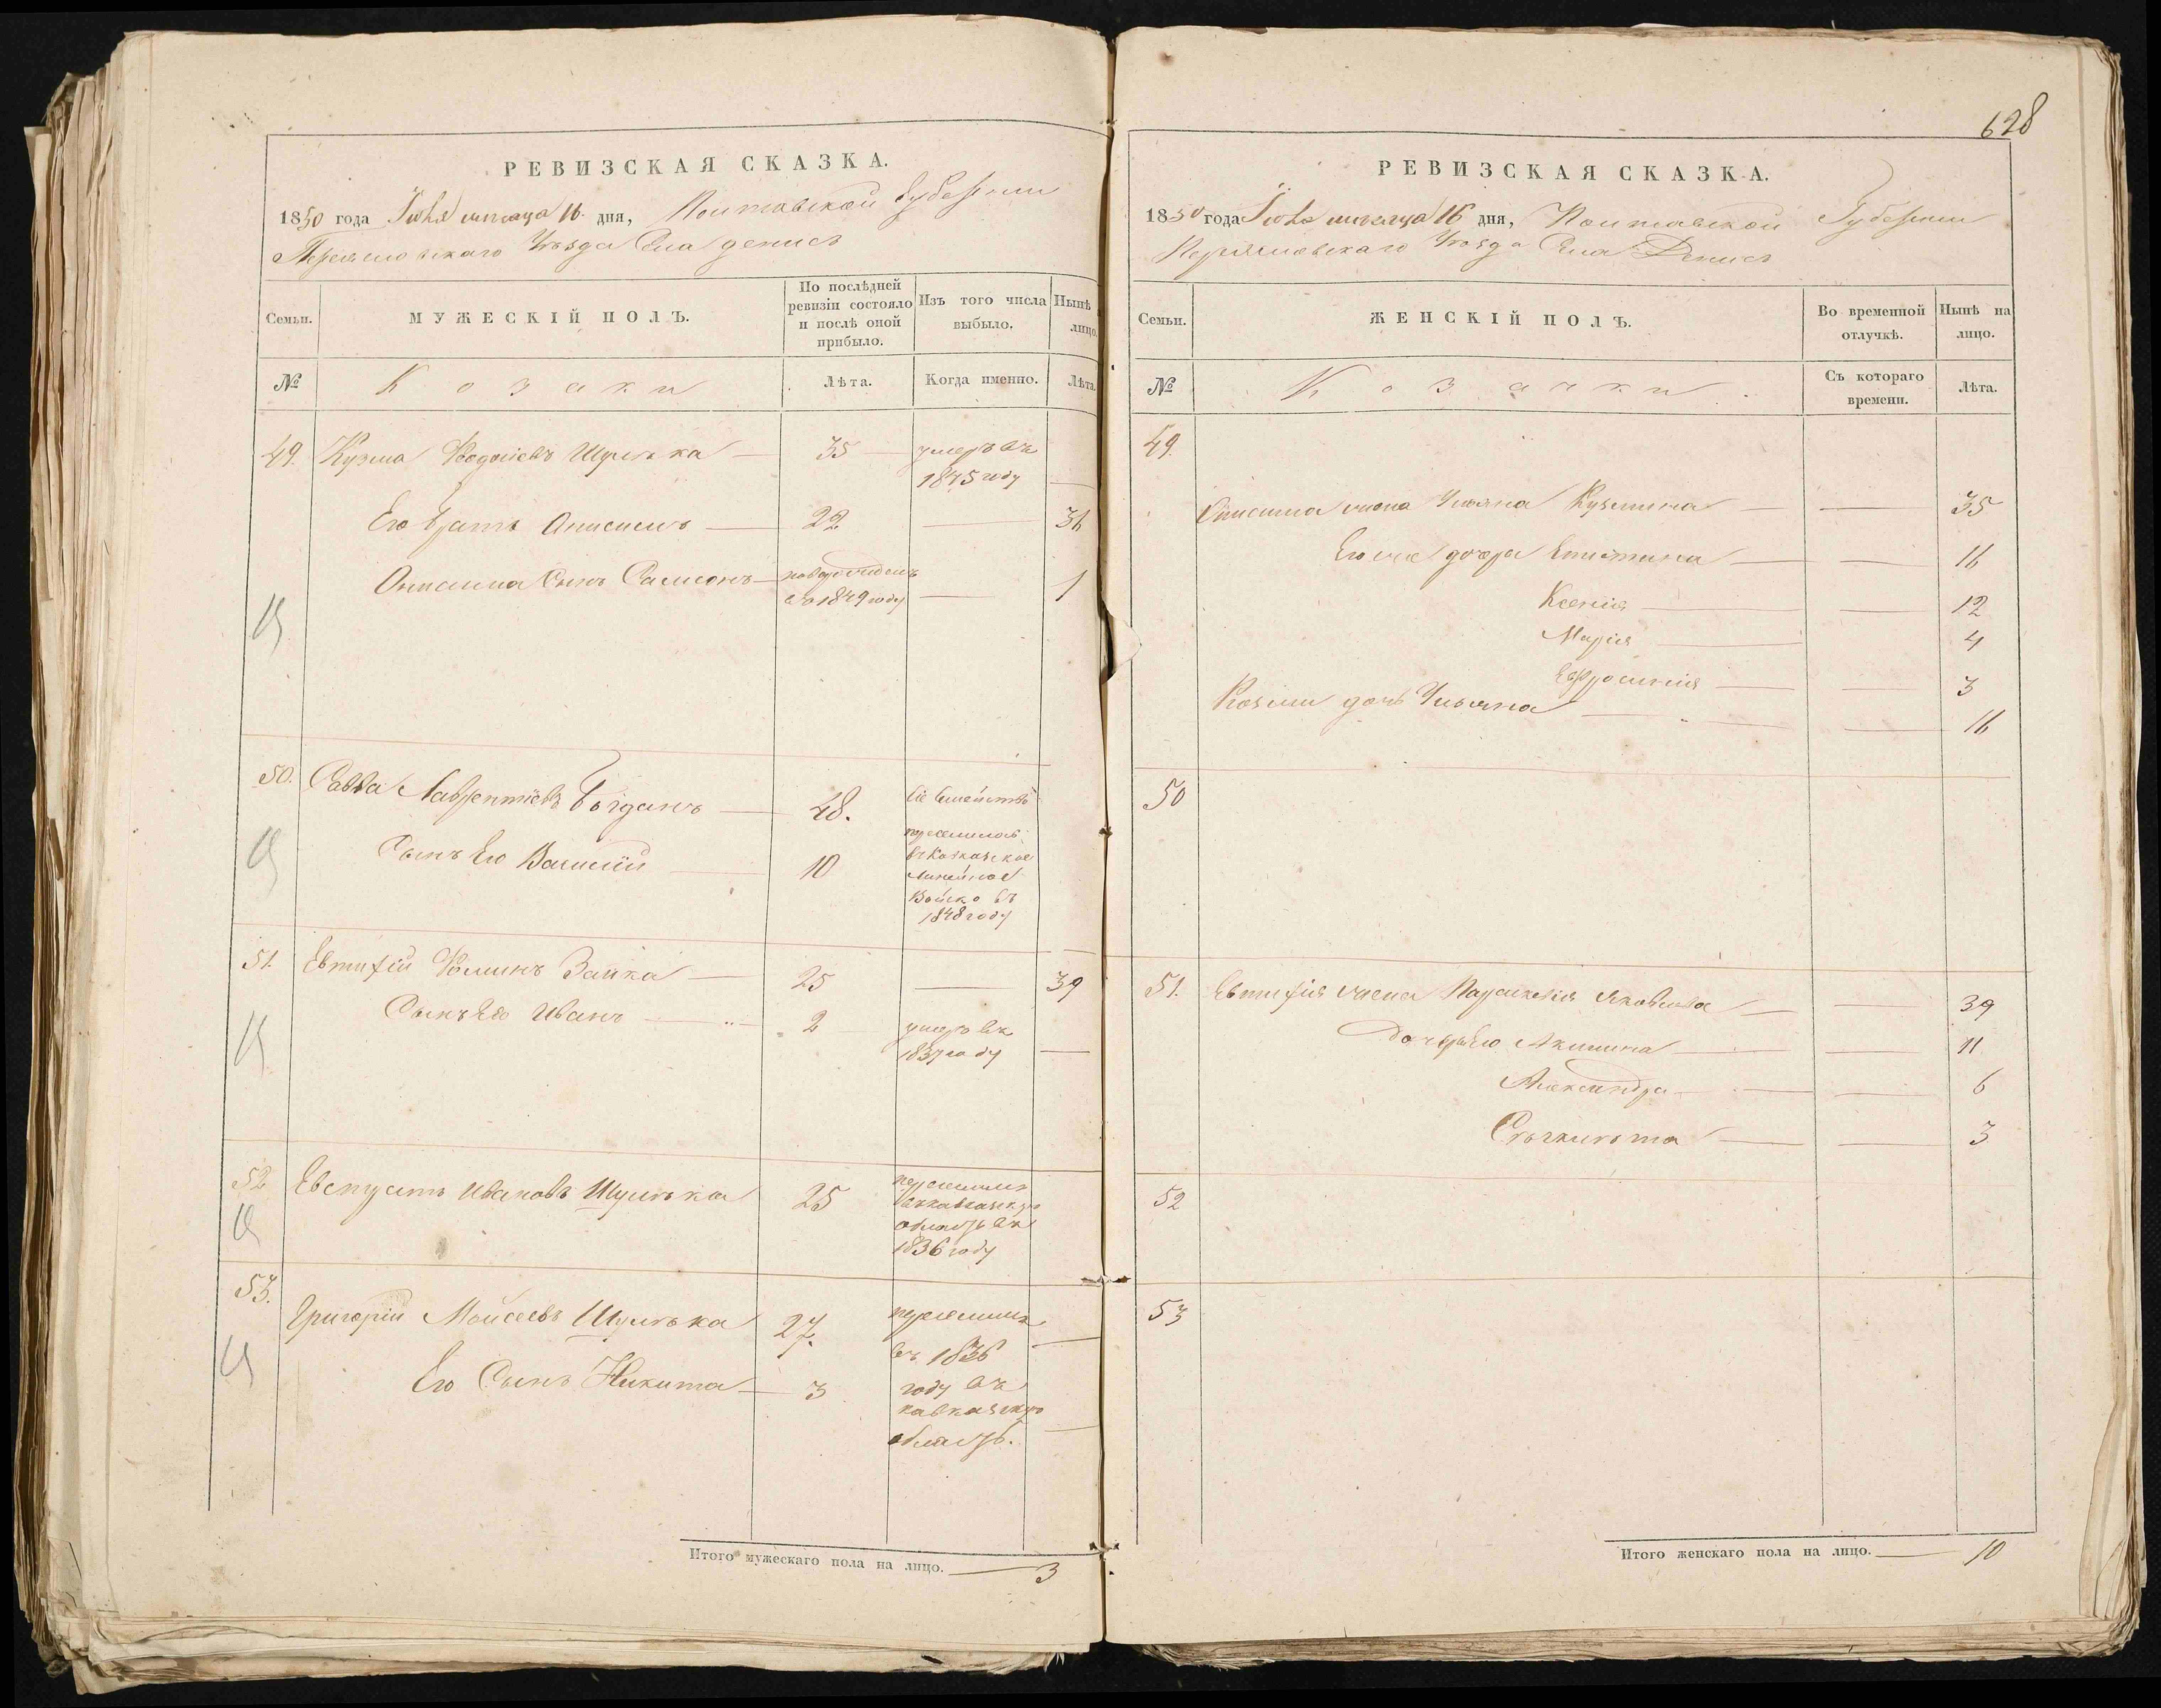 РЕВИЗСКАЯ СКАЗКА.
1850 года Іюня месяца 16 дня, Полтавской Губернии
Переясловскаго Уезда Села Денисъ
Семьи.
МУЖЕСКІЙ ПОЛЪ.
По послѣдней ревизіи состояло и послѣ оной прибыло.
Изъ того числа выбыло.
Нынѣ лицо.
№
Козаки
Лѣта.
Когда именно.
Лѣта.
49. Кузма Федоровъ Шулька 35 умеръ въ
1845 году
Его братъ Анисимъ 22 36
Анисима Сынъ Самсонъ новорожденъ
въ 1849 году 1
50. Савва Лаврентіевъ Богданъ 48. Сіе Семейство
Сынъ Его Василій 10
переселилось
въ Кавказкое
Линейное
Войско въ
1848 году
51. Евтифій Фоминъ Заика 25 39
Сынъ Его Иванъ 2 умеръ въ
1837 году
52 Евстратъ Ивановъ Шулька 25 переселился
въ кавказску
область въ
1836 году
53. Григорій Мойсеевъ Шулька 27. переселился
въ 1836
Его Сынъ Никита 3 году въ
кавказскую
область.
Итого мужескаго пола на лицо. 3
628
РЕВИЗСКАЯ СКАЗКА.
1850 года Іюня месяца 16 дня, Полтавской Губернии
Переясловскаго Уезда Села Денисъ
Семьи.
ЖЕНСКІЙ ПОЛЪ.
Во временной отлучкѣ.
Нынѣ на лицо.
№
Козачки
Съ котораго времени.
Лѣта.
49.
Анисима жена Ульяна Кузмина 35
Его же дочери Епистима 16
Ксенія 12
Марія 4
Евфросинія 3
Козмы дочь Ульяна 16
50
51. Евтифія жена Параскевія Яковлева 39
Дочери Его Акилина 11
Александра 6
3
52
53
Итого женскаго пола на лицо. 10